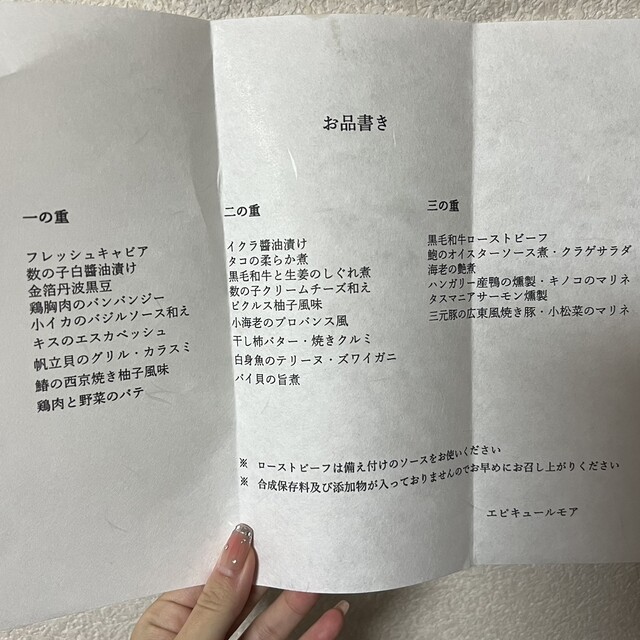 お品書き
一の重
フレッシュキャビア
数の子白醬油漬け
金箔丹波黒豆
鶏胸肉のバンバンジー
小イカのバジルソース和え
キスのエスカベッシュ
帆立貝のグリル・カラスミ
鰆の西京焼き柚子風味
鶏肉と野菜のパテ
二の重
イクラ醬油漬け
タコの柔らか煮
黒毛和牛と生姜のしぐれ煮
数の子クリームチーズ和え
ピクルス柚子風味
小海老のプロバンス風
干し柿バター・焼きクルミ
白身魚のテリーヌ・ズワイガニ
バイ貝の旨煮
三の重
黒毛和牛ローストビーフ
鮑のオイスターソース煮・クラゲサラダ
海老の艶煮
ハンガリー産鴨の燻製・キノコのマリネ
タスマニアサーモン燻製
三元豚の広東風焼き豚・小松菜のマリネ
※ ローストビーフは備え付けのソースをお使いください
※ 合成保存料及び添加物が入っておりませんのでお早めにお召し上がりください
エピキュールモア